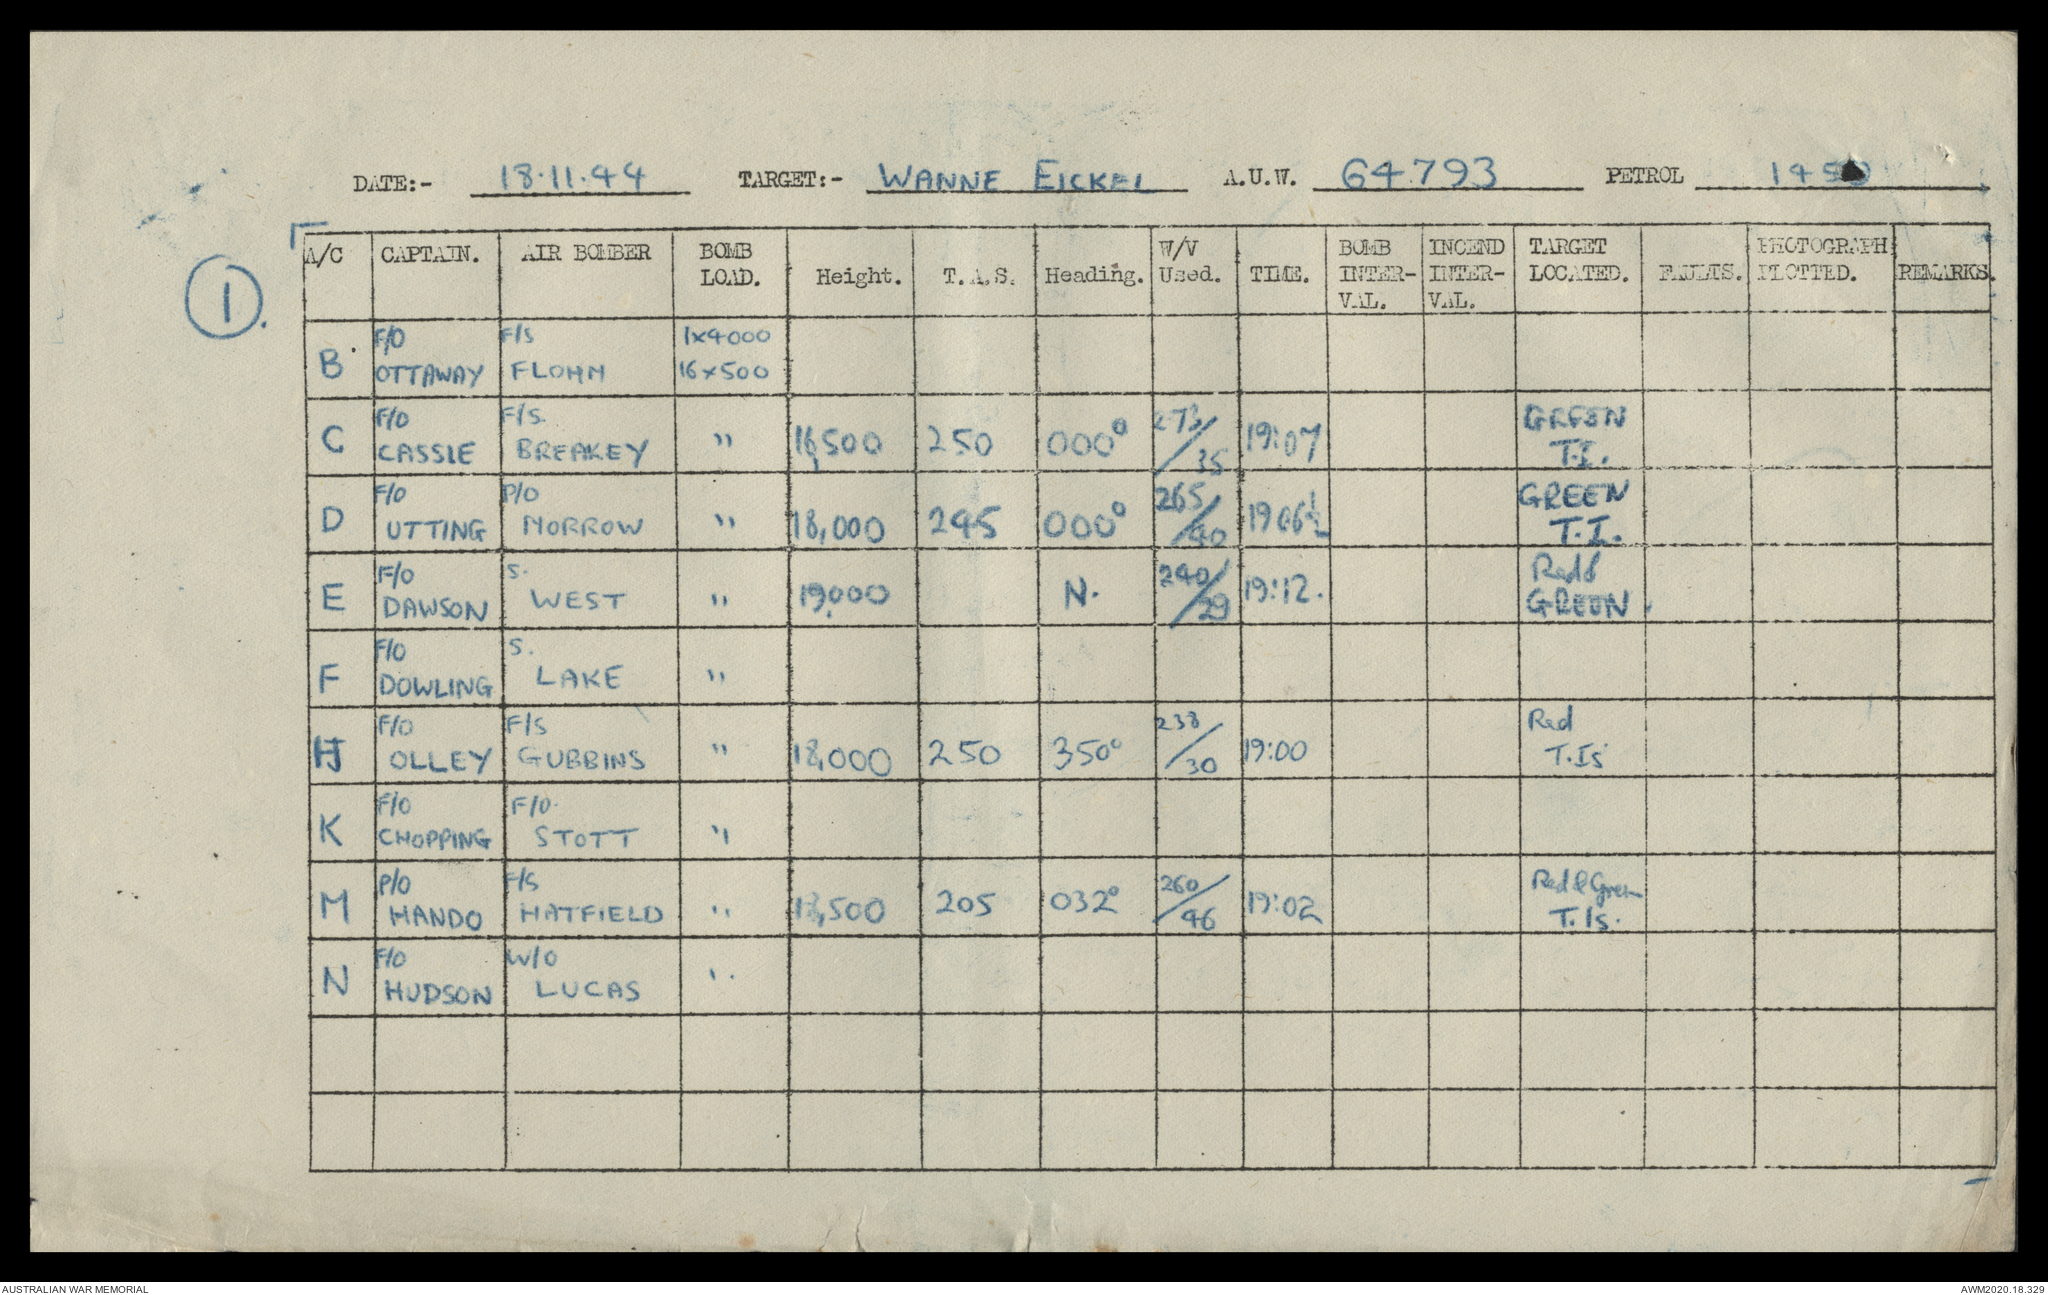 DATE:- 18.11.44 TARGET:- WANNE EICKEL A.U.W. 64793 PETROL
1.
A/C CAPTAIN. AIR BOMBER BOMB LOAD. Height. T.A.S. Heading. W/V Used. TIME. BOMB INTER-VAL. INCEND INTER-VAL. TARGET LOCATED. FAULTS. PHOTOGRAPH PLOTTED. REMARKS.
B F/O OTTAWAY F/S FLOHM 1x4000 16x500
C F/O CASSIE F/S. BREAKEY " 16,500 250 000° 273/35 19:07 GREEN T.I.
D F/O UTTING P/O MORROW " 18,000 245 000° 265/40 1906½ GREEN T.I.
E F/O DAWSON S. WEST " 19,000 N. 240/29 19:12. Red & GREEN.
F F/O DOWLING S. LAKE "
F/O OLLEY F/S GUBBINS " 18,000 250 350° 238/30 19:00 Red T.Is
K F/O CHOPPING F/O. STOTT "
M P/O HANDO F/S HATFIELD " 205 032° 260/46 19:02 Red & Green T.Is.
N F/O HUDSON W/O LUCAS "
AUSTRALIAN WAR MEMORIAL AWM2020.18.329